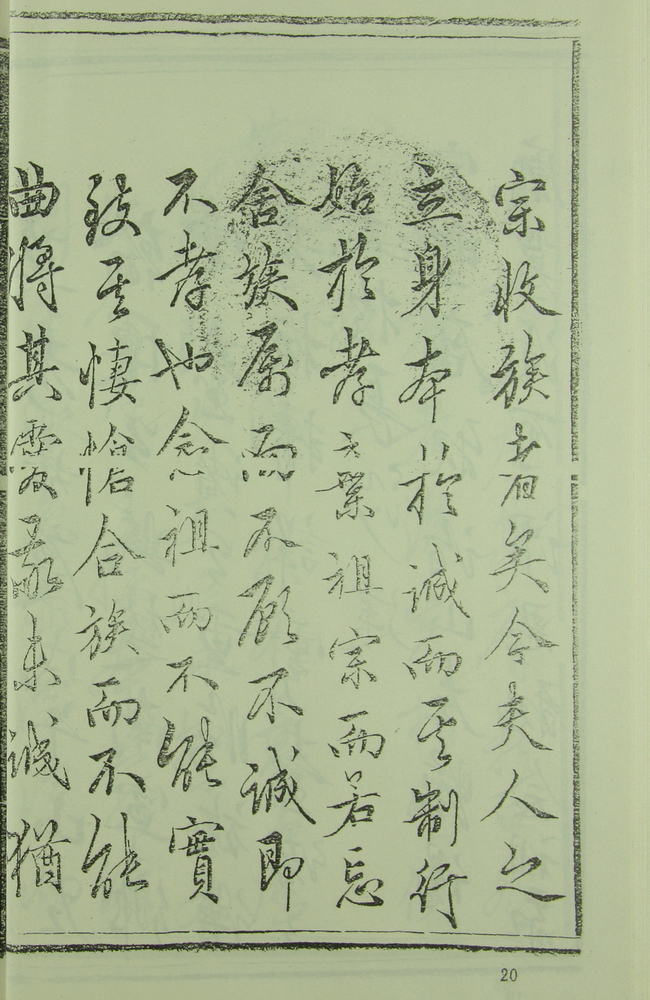 宗收族者矣今夫人之
立身本於誠而其制行
始於孝棄祖宗而若忘
舍族属而不顾不誠即
不孝也念祖而不能實
致其悽恰合族而不能
曲將其靄最未誠猶
20